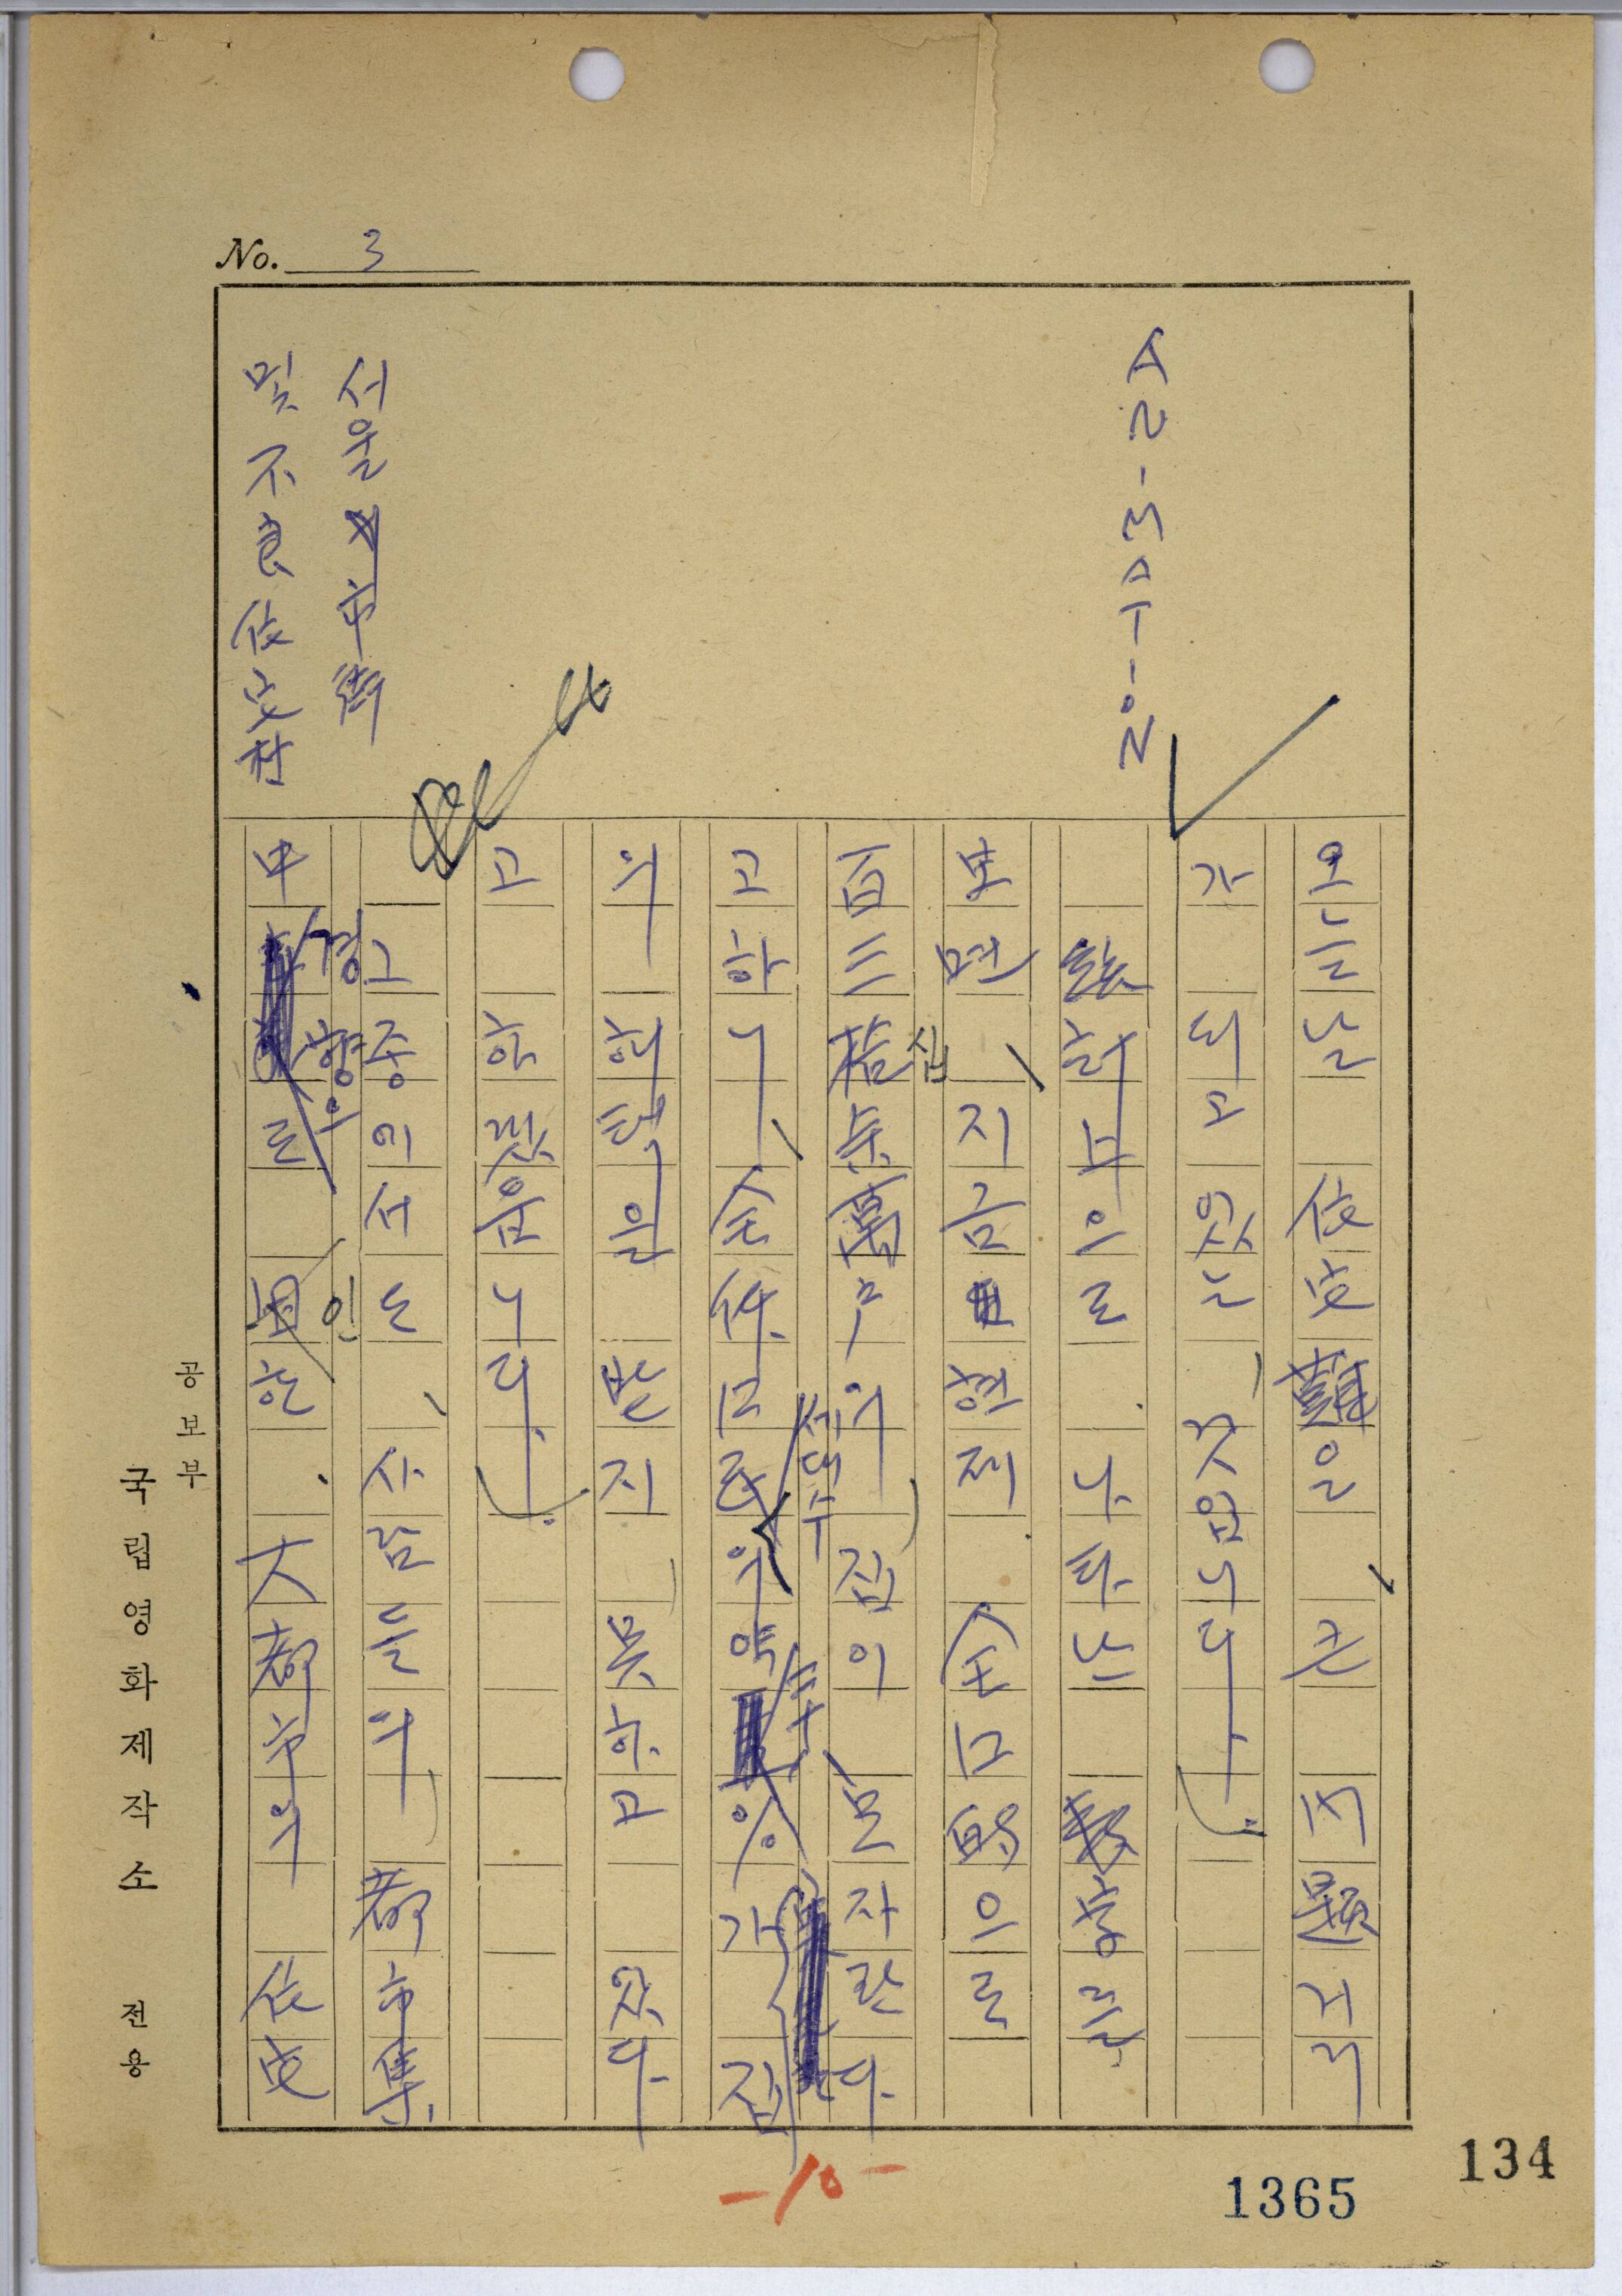 No. 3
오늘날 住宅難은 큰 문題꺼리
가 되고 있는 것입니다.
으로 나타난 數字를
보면, 지금 현재 全국的으로
百三십余萬戶의 집이 모자란다
고 하니, 全体 국民의 약 % 가 집
의 혜택을 받지 못하고 있다
고 하겠읍니다.
그중에서도, 사람들의 都市集
中 경향으로 인한, 大都市의 住宅
서울 市街
및 不良住宅村
공보부
국립영화제작소 전용
-10-
1365
134